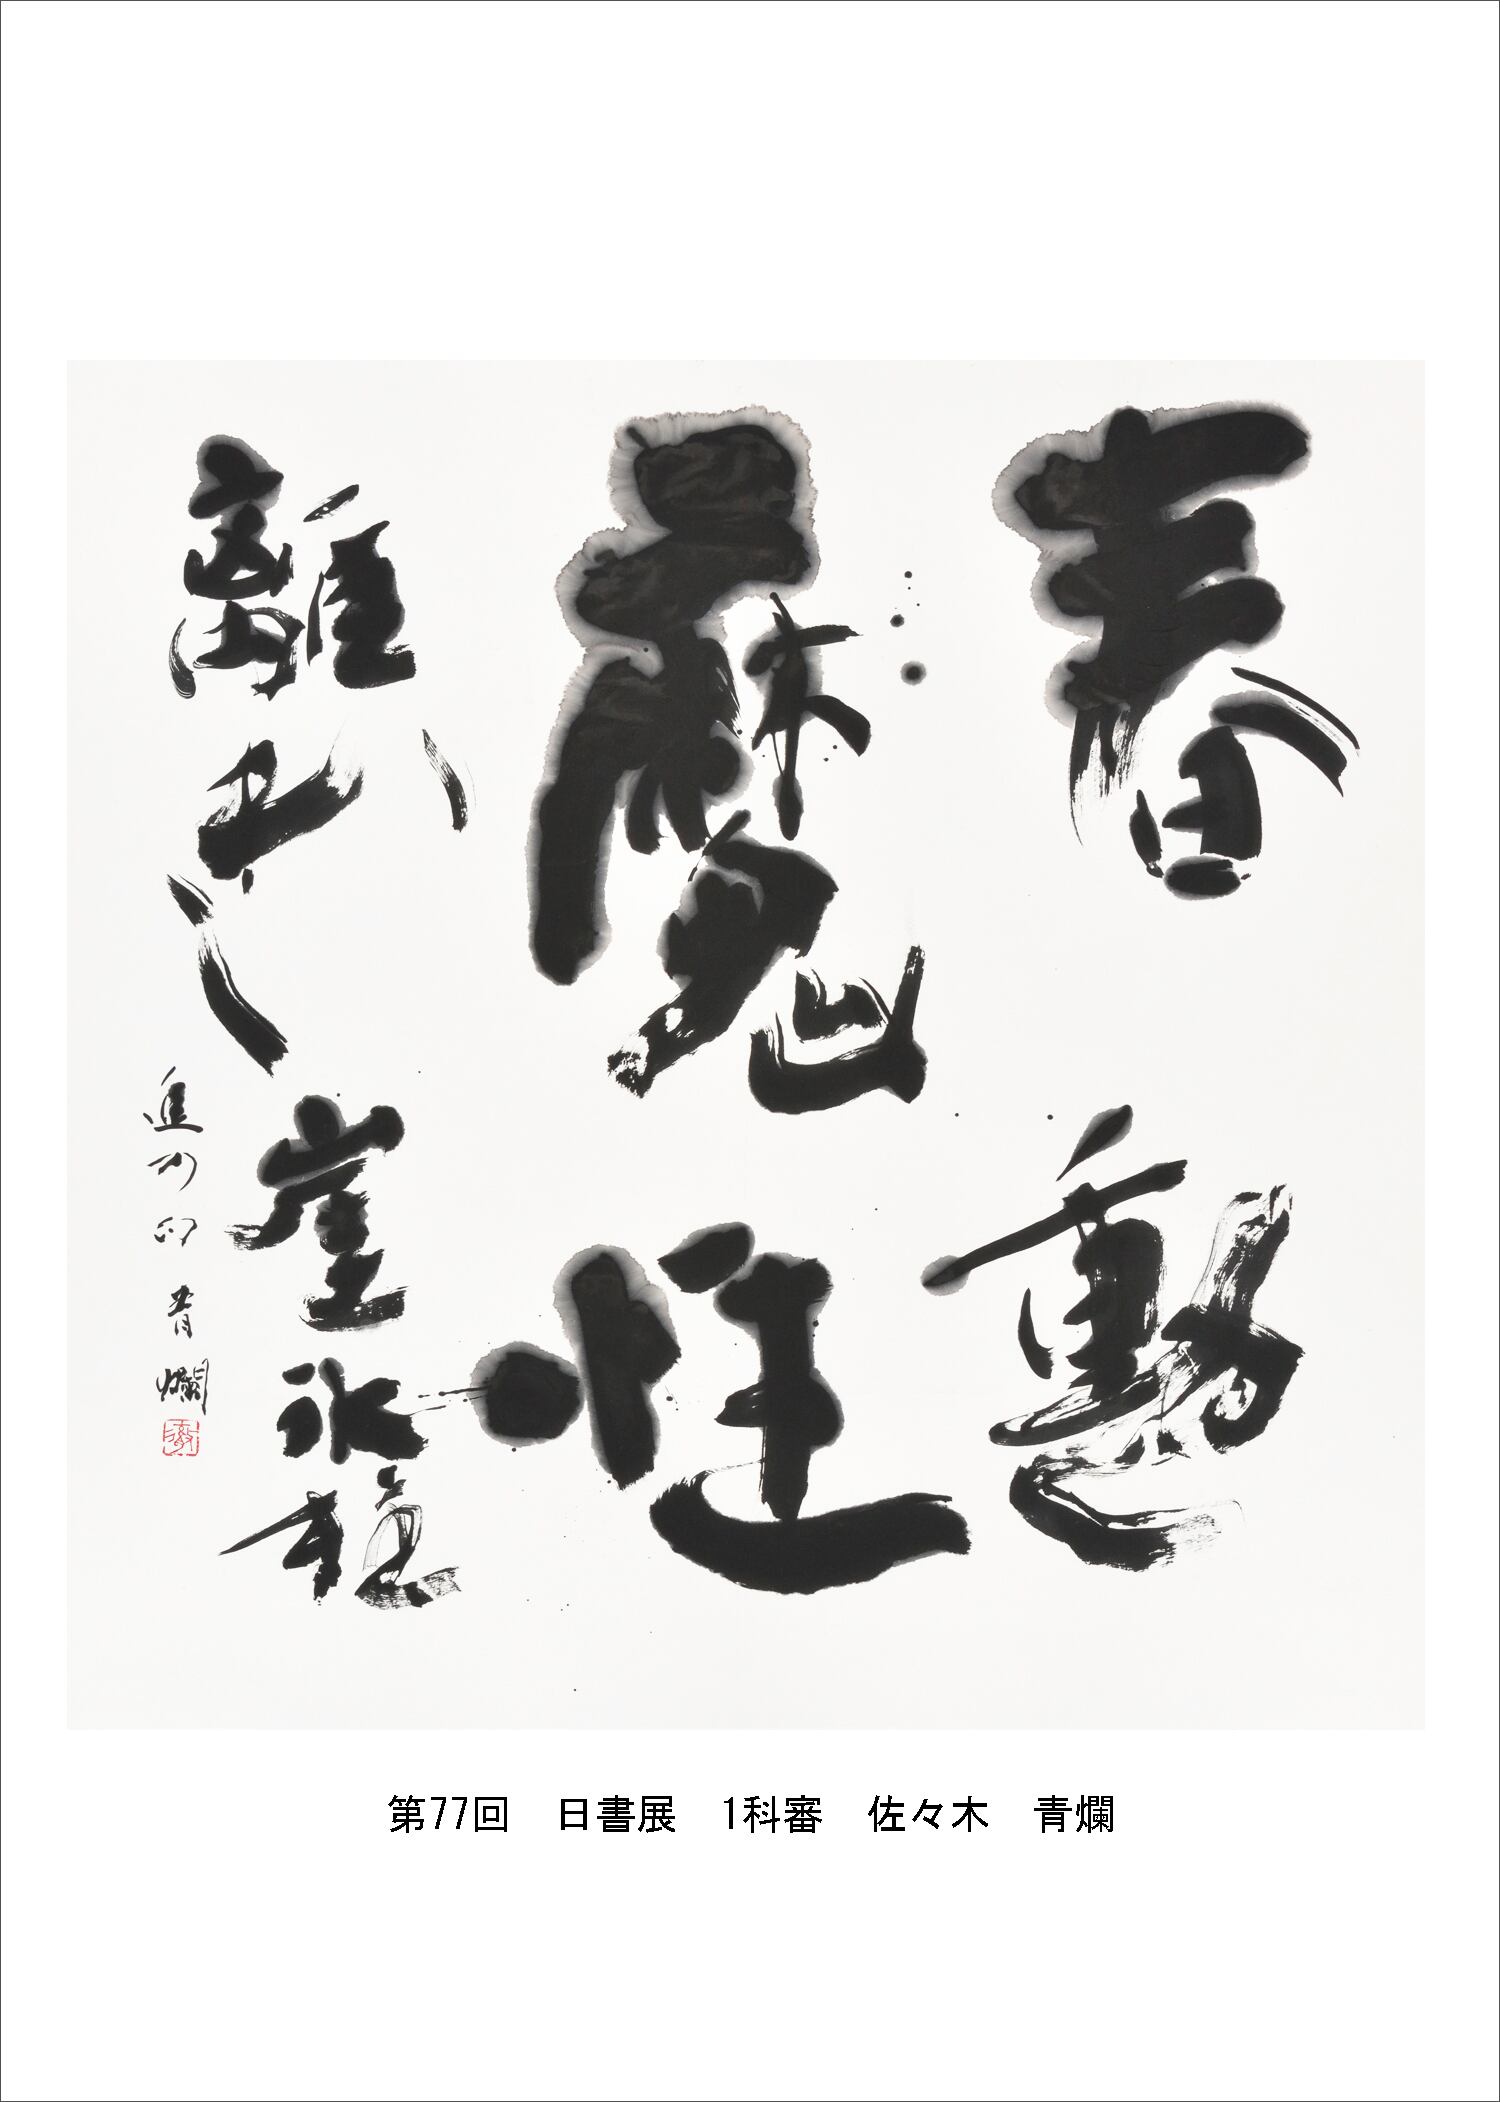 春動
魔性
離れし
崖氷穏
青爛
第77回　日書展　1科審　佐々木　青爛